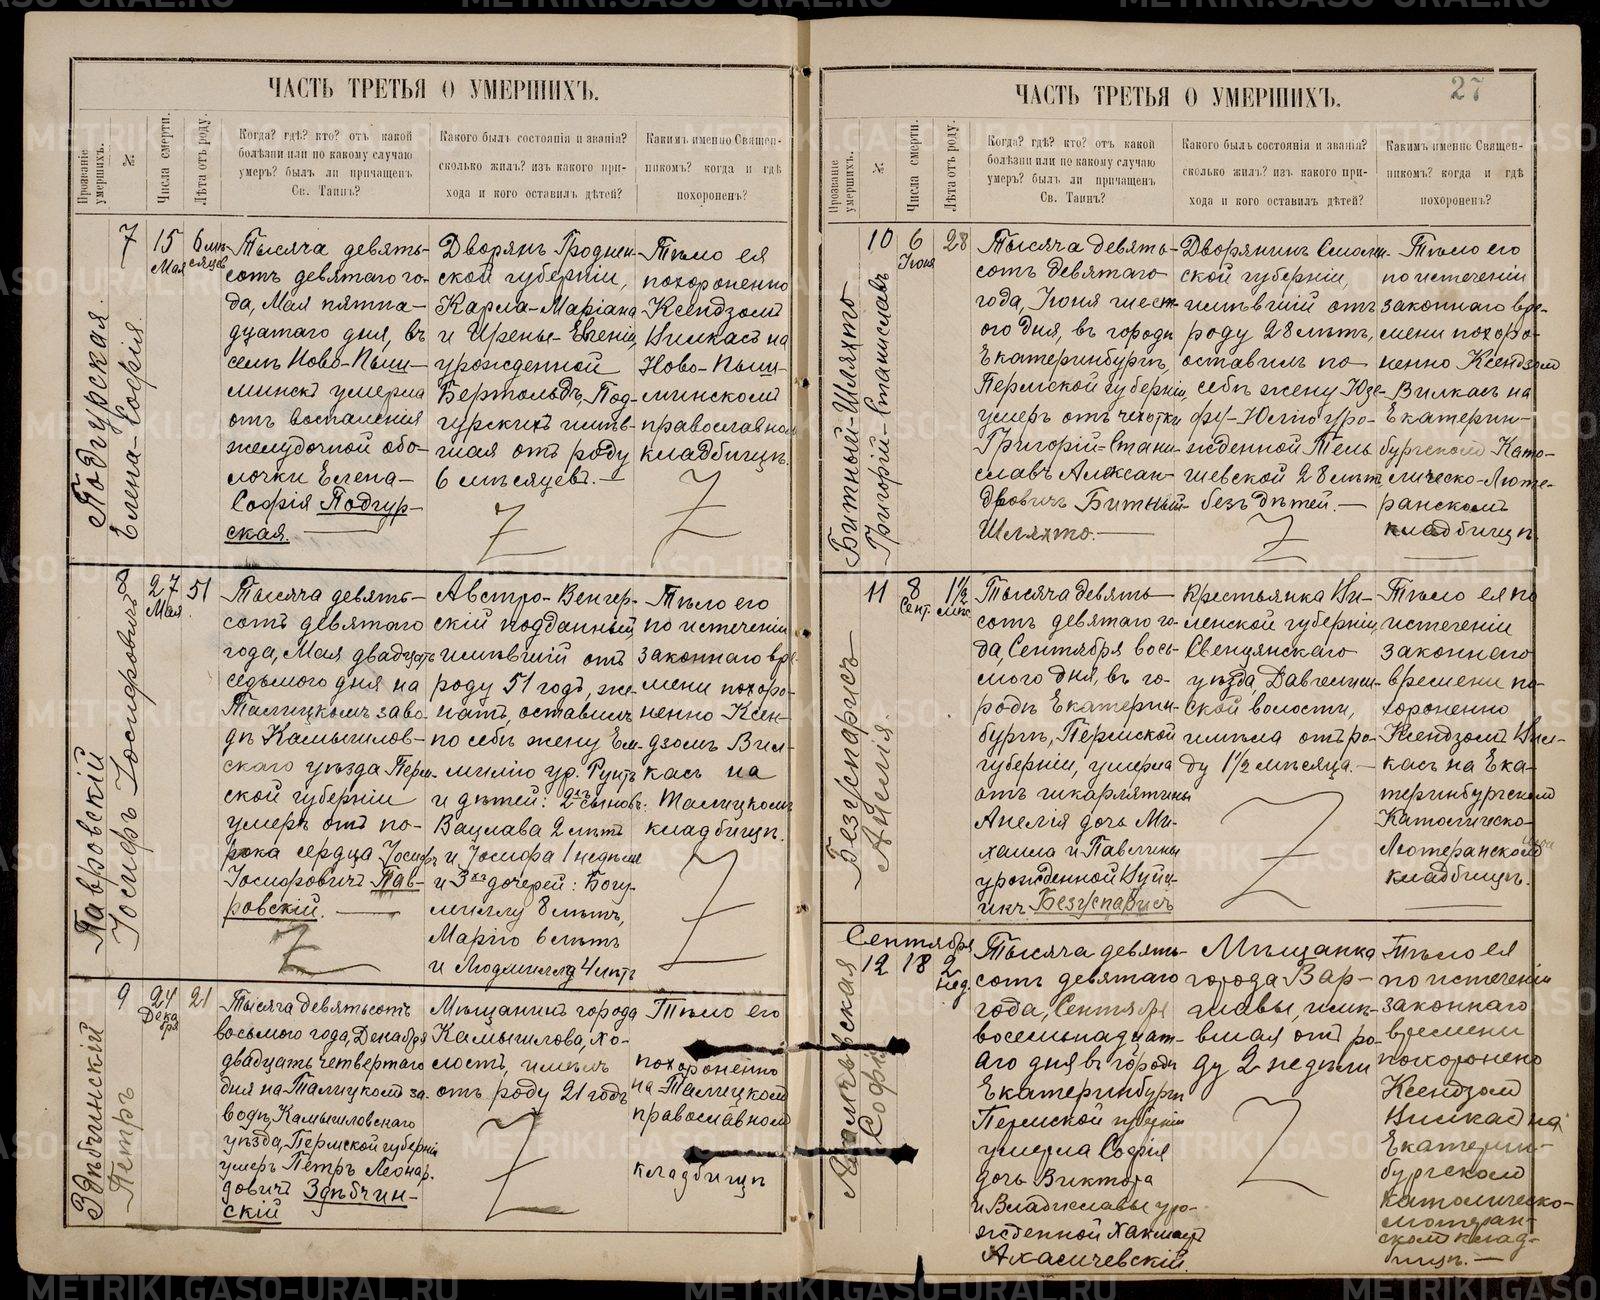 ЧАСТЬ ТРЕТЬЯ О УМЕРШИХЪ.
Прозваніе умершихъ.
№
Числа смерти.
Лѣта отъ роду.
Когда? гдѣ? кто? отъ какой
болѣзни или по какому случаю
умеръ? былъ ли причащенъ
Св. Таинъ?
Какого былъ состоянія и званія?
сколько жилъ? изъ какого при-
хода и кого оставилъ дѣтей?
Какимъ именно Священ-
никомъ? когда и гдѣ
похороненъ?
Подгурская
Елена-Софія.
7
15
Мая
6 мѣ-
сяцев
Тысяча девять-
сотъ девятаго го-
да, Мая пятна-
дцатаго дня, въ
селѣ Ново-Пыш-
минскѣ умерла
отъ воспаленія
желудочной обо-
лочки Елена-
Софія Подгур-
ская.
Дворянъ Гроднен-
ской губерніи,
Карла-Маріана
и Ирены-Евгеніи,
урожденной
Бертольдъ, Под-
гурскихъ имѣв-
шая отъ роду
6 мѣсяцевъ.
Тѣло ея
похороненно
Ксендзомъ
Вилкасъ на
Ново-Пыш-
минскомъ
православном
кладбищѣ.
Павровскій
Іосифъ Іосифовичъ
8
27
Мая
51
Тысяча девять-
сотъ девятаго
года, Мая двадцать
седьмого дня на
Талицкомъ заво-
дѣ Камышлов-
скаго уѣзда Перм-
ской губерніи
умеръ отъ по-
рока сердца Іосифъ
Іосифовичъ Пав-
ровскій.
Австро-Венгер-
скій подданный
имѣвшій отъ
роду 51 годъ, же-
натъ, оставилъ
по себѣ жену Эм-
милію ур. Рунтъ
и дѣтей: 2хъ сыновъ:
Вацлава 2 лѣтъ
и Іосифа 1 недѣли
и 3хъ дочерей: Богу-
миллу 8 лѣтъ,
Марію 6 лѣтъ
и Людмиллу 4 лѣтъ
Тѣло его
по истеченіи
законнаго вре-
мени похоро-
ненно Ксен-
дзомъ Вил-
касъ на
Талицкомъ
кладбищѣ.
Здѣбчинскій
Петръ
9
24
Дека
бря
21
Тысяча девятьсотъ
восьмого года, Декабря
двадцать четвертаго
дня на Талицкомъ за-
водѣ, Камышловскаго
уѣзда, Пермской губерніи
умеръ Петръ Леонар-
довичъ Здѣбчин-
скій
Мѣщанинъ города
Камышлова, хо-
лостъ, имѣлъ
отъ роду 21 годъ
Тѣло его
похороненно
на Талицкомъ
православномъ
кладбищѣ
ЧАСТЬ ТРЕТЬЯ О УМЕРШИХЪ.
27
Прозваніе умершихъ.
№
Числа смерти.
Лѣта отъ роду.
Когда? гдѣ? кто? отъ какой
болѣзни или по какому случаю
умеръ? былъ ли причащенъ
Св. Таинъ?
Какого былъ состоянія и званія?
сколько жилъ? изъ какого при-
хода и кого оставилъ дѣтей?
Какимъ именно Священ-
никомъ? когда и гдѣ
похороненъ?
Битный-Шляхто
Григорій-Станиславъ
10
6
Іюня
28
Тысяча девять-
сотъ девятаго
года, Іюня шест-
ого дня, въ городѣ
Екатеринбургѣ,
Пермской губерніи,
умеръ отъ чехотки
Григорій-Стани-
славъ Алексан-
дровичъ Битный-
Шляхто.
Дворянинъ Смолен-
ской губерніи,
имѣвшій отъ
роду 28 лѣтъ,
оставилъ по
себѣ жену Юзе-
фу-Юлію уро-
жденной Тель-
шевской 28 лѣтъ,
безъ дѣтей.
Тѣло его
по истеченіи
законнаго вре-
мени похоро-
ненно Ксендзом
Вилкасъ на
Екатерин-
бургскомъ Като-
лическо-Люте-
ранскомъ
кладбищѣ
Безуспарисъ
Анелія.
11
8
Сент.
1½
мѣс.
Тысяча девять-
сотъ девятаго го-
да, Сентября вось-
мого дня, въ го-
родѣ Екатерин-
бургѣ, Пермской
губерніи, умерла
отъ шкарлятины
Анелія дочь Ми-
хаила и Павлины
урожденной Вуйц-
икъ Безуспарисъ
Крестьянка Ви-
ленской губерніи
Свенцянскаго
уѣзда, Давгелиш-
ской волости,
имѣла отъ ро-
ду 1½ мѣсяца.
Тѣло ея по
истеченіи
законнаго
времени по-
хороненно
Ксендзомъ Вил-
касъ на Ека-
теринбургскомъ
Католическо-
Лютеранскомъ
кладбищѣ.
Софія
Сентября
12
18
2
нед.
Тысяча девять-
сотъ девятаго
года, Сентября
восемнадцат-
аго дня въ городѣ
Екатеринбургѣ
Пермской губерніи
умерла Софія
дочь Виктора
и Владиславы уро-
жденной
Мѣщанка
города Вар-
шавы, имѣ-
вшая отъ ро-
ду 2 недѣли
Тѣло ея
по истеченіи
законнаго
времени
похоронено
Ксендзом
Вилкас на
Екатерин-
бургском
католическо-
лютеран-
ском клад-
бищѣ.
METRIKI.GASO-URAL.RU